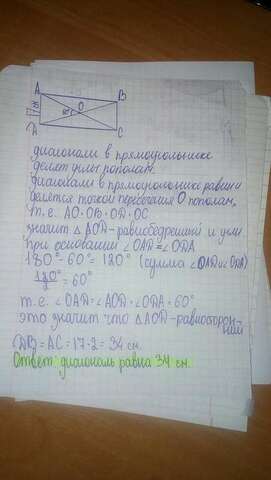 A
B
O
60°
Д
C
диагонали в прямоугольнике
делят углы пополам.
диагонали в прямоугольнике равны и
делятся точкой пересечения О пополам,
т.е. АО=ОВ=ОД=ОС
значит △ АОД-равнобедренный и углы
при основании ∠ОАД=∠ОДА
180°-60°=120° (сумма ∠ОАД и ∠ОДА)
120°/2=60°
т.е. ∠ОАД=∠АОД=∠ОДА=60°
это значит что △АОД-равносторон-
ний
ДВ=АС=17·2=34 см.
Ответ: диагональ равна 34 см.